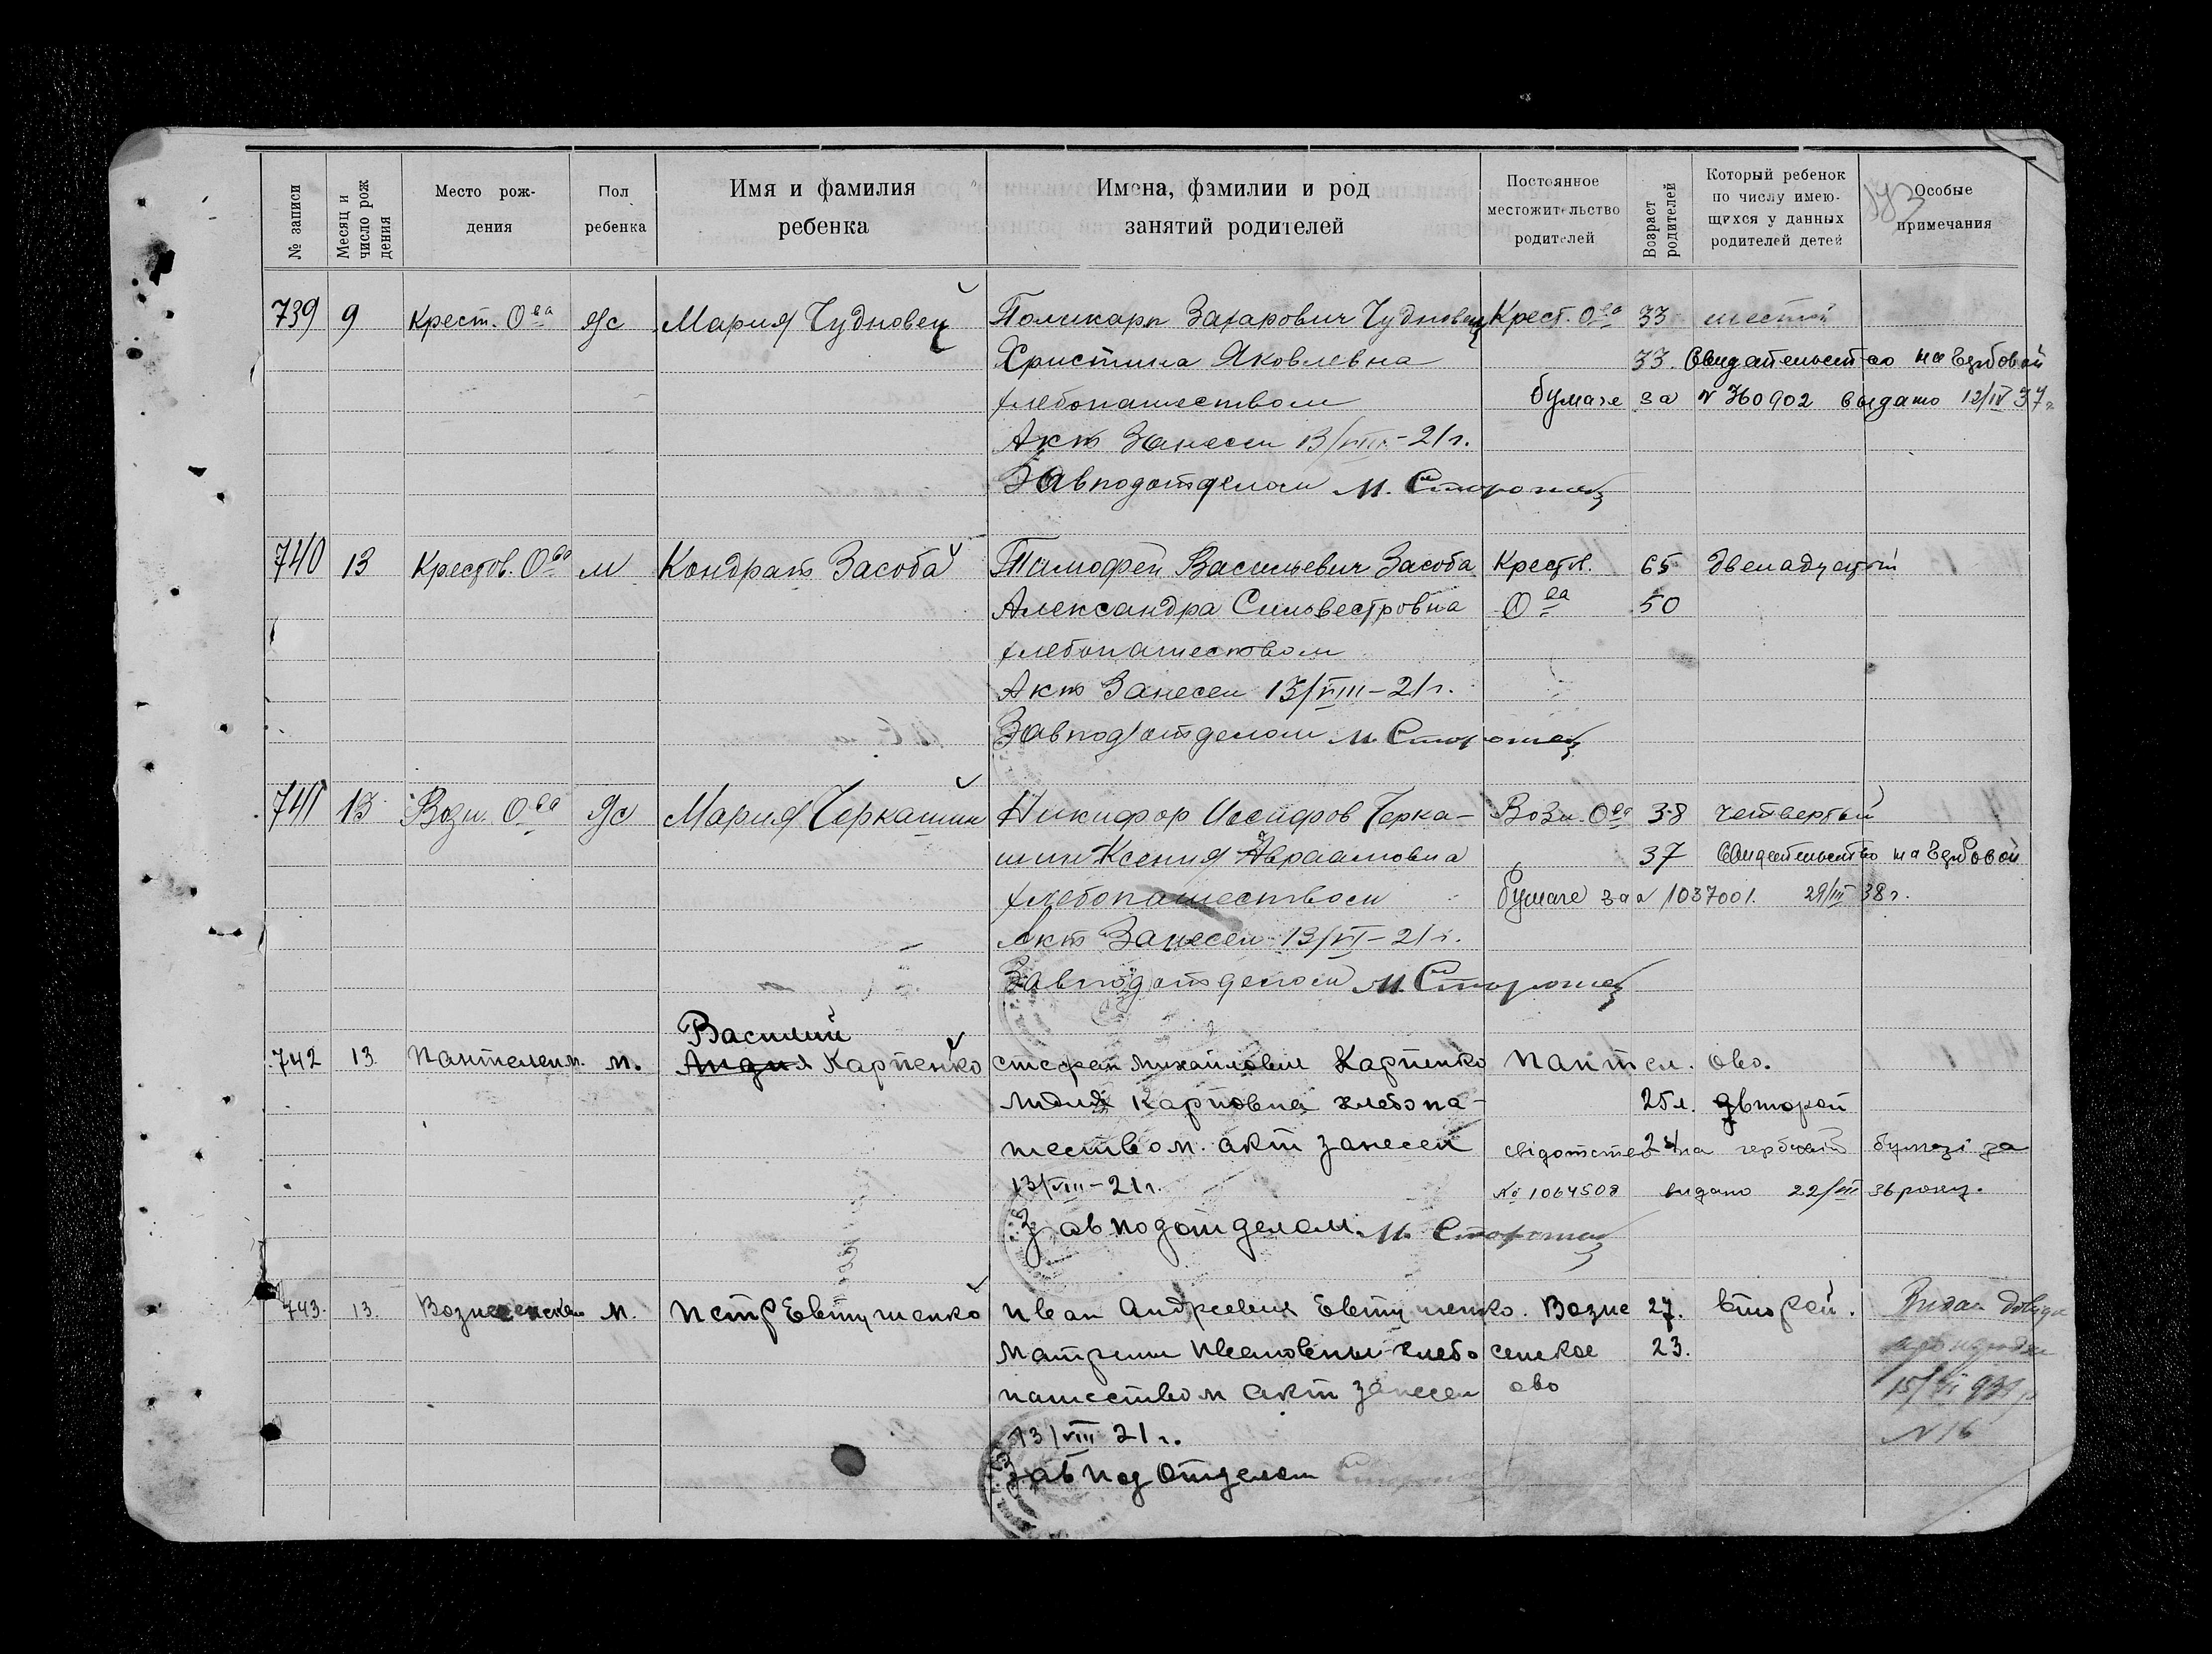 № записи
Месяц и число рож дения
Место рож-
дения
Пол
ребенка
Имя и фамилия
ребенка
Имена, фамилии и род
занятий родителей
Постоянное
местожительство
родителей
Возраст родителей
Который ребенок
по числу имею-
щихся у данных
родителей детей
Особые
примечания
739 9 Крест. Ова ж Мария Чудновец Поликарп Захарович Чудновец Крест. Ова 33 шестой
Христина Яковлевна 33. Свидетельство на гербовой
хлебопашеством бумаге за № 760902 выдано 12/IV 37 г.
Акт Занесен 13/VIII - 21 г.
Завподотделом М. Сторожец
740 13 Крестов. Ова м Кондрат Засоба Тимофей Васильевич Засоба Крестов. 65 Двенадцатый
Александра Сильвестровна Ова 50
хлебопашеством
Акт Занесен 13/VIII - 21 г.
Завподотделом М. Сторожец
741 13 Возн. Ова ж Мария Черкашин Никифор Иосифов Черка-
Возн. Ова 38 четвертый
шин Ксения Авраамовна 37 Свидетельство на Гербовой
хлебопашеством бумаге за № 1037001. 29/III 38 г.
Акт Занесен 13/VI - 21 г.
Завподотделом М. Сторожец
Василий
742 13. Пантелеим. м. Карпенко Стефан Михайлович Карпенко Пантел. ово.
Лидия Карповна хлебопа- 25 л. второй
шеством. акт занесен 24 свідотство на гербовій бумазі за
13/VIII - 21 г. № 1064508 видано 22/III
Завподотделом. М. Сторожец
743. 13. Вознесенское м. Петр Евтушенко Иван Андреевич Евтушенко. Возне 27. второй.
Матрена Ивановны хлебо сенское 23.
пашеством акт занесен ово
13/VIII 21 г. № 16
Завподотделом